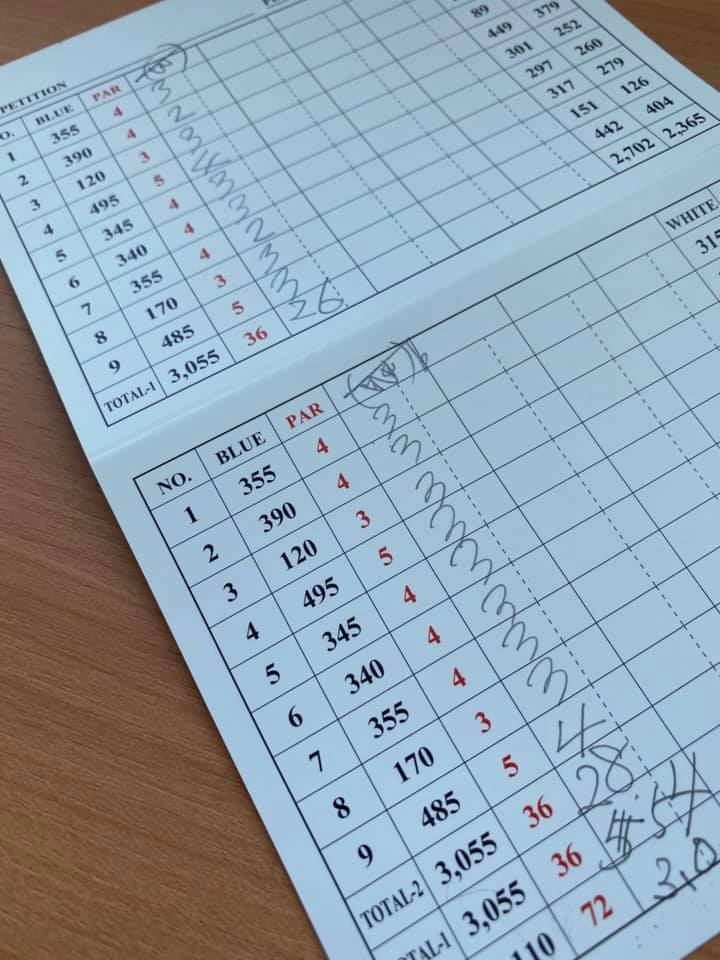 PETITION
O. BLUE PAR
1 355 4 3
2 390 4 2
3 120 3 3 89
4 495 5 4 449 379
5 345 4 3 301 252
6 340 4 3 297 260
7 355 4 2 317 279
8 170 3 3 151 126
9 485 5 3 442 404
TOTAL-1 3,055 36 26 2,702 2,365
NO. BLUE PAR WHITE
1 355 4 3 315
2 390 4 3
3 120 3 3
4 495 5 3
5 345 4 3
6 340 4 3
7 355 4 3
8 170 3 3
9 485 5 4
TOTAL-2 3,055 36 28
TAL-1 3,055 36 54
110 72 3,0